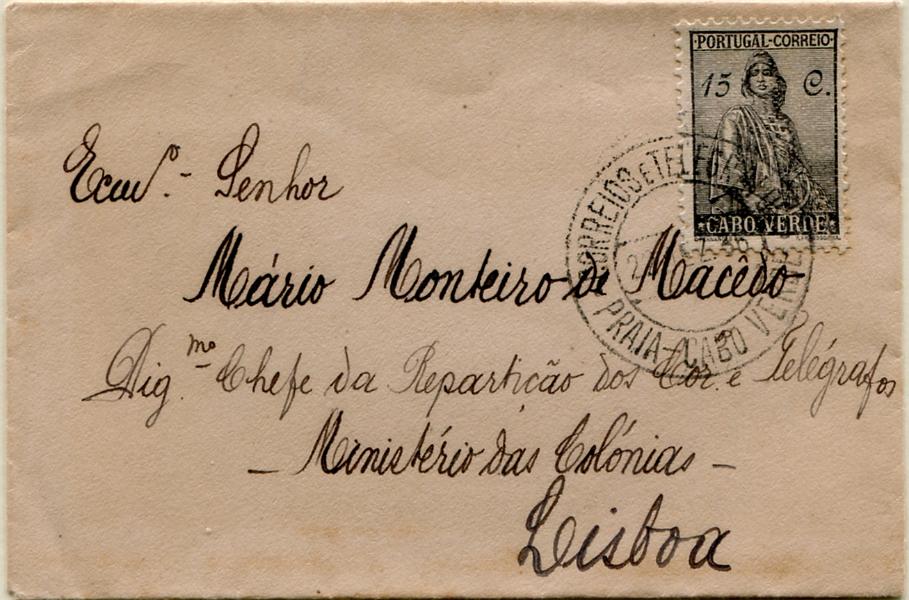 PORTUGAL-CORREIO
15 C.
CABO VERDE
CORREIOS E TELEG
PRAIA - CABO VERDE
Excmº.- Senhor
Mário Monteiro de Macêdo
Dig.mo Chefe da Repartição dos Cor. e Telégrafos
- Ministério das Colónias -
Lisboa